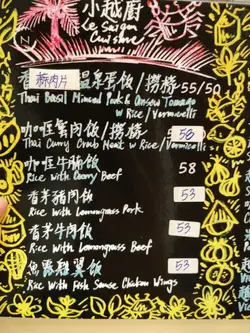 小越廚
Le Saigon
Cuisine
香 豬肉片 溫泉蛋飯/撈檬 55/50
Thai Basil Minced Pork & Onsen Tamago
w Rice/Vermicelli
咖喱蟹肉飯/撈檬 58
Thai Curry Crab Meat w Rice/Vermicelli
咖喱牛腩飯 58
Rice with Curry Beef
香茅豬肉飯 53
Rice with Lemongrass Pork
香茅牛肉飯 53
Rice with Lemongrass Beef
魚露雞翼飯 53
Rice With Fish Sause Chicken Wings